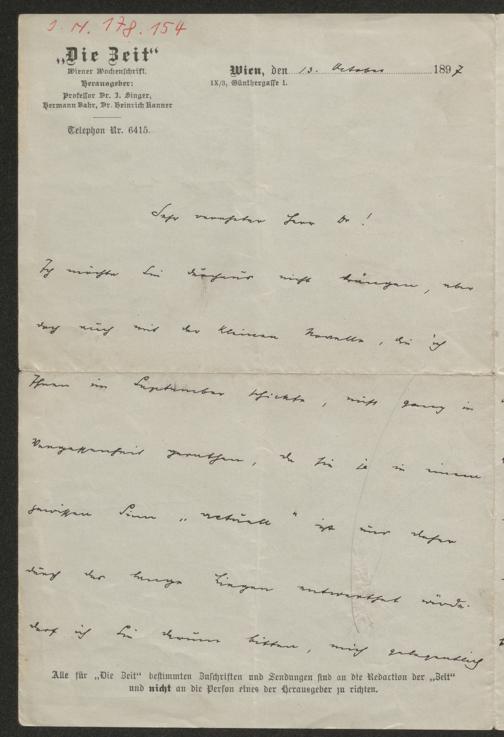 I. N. 178.154
„Die Zeit“
Wiener Wochenschrift.
Herausgeber:
Professor Dr. I. Singer,
Hermann Bahr, Dr. Heinrich Kanner
Telephon Nr. 6415.
Wien, den 13. October 1897
IX/3, Günthergasse 1.
Sehr verehrter Herr Dr!
Ich möchte Sie durchaus nicht drängen, aber
doch auch mit der kleinen Novelle, die ich
Ihnen im September schickte, nicht ganz in
Vergessenheit gerathen, da sie ja in einem
gewissen Sinn „actuell“ ist und daher
durch das lange Liegen entwerthet würde.
Darf ich Sie darum bitten, mich gelegentlich
Alle für „Die Zeit“ bestimmten Zuschriften und Sendungen sind an die Redaction der „Zeit“
und nicht an die Person eines der Herausgeber zu richten.